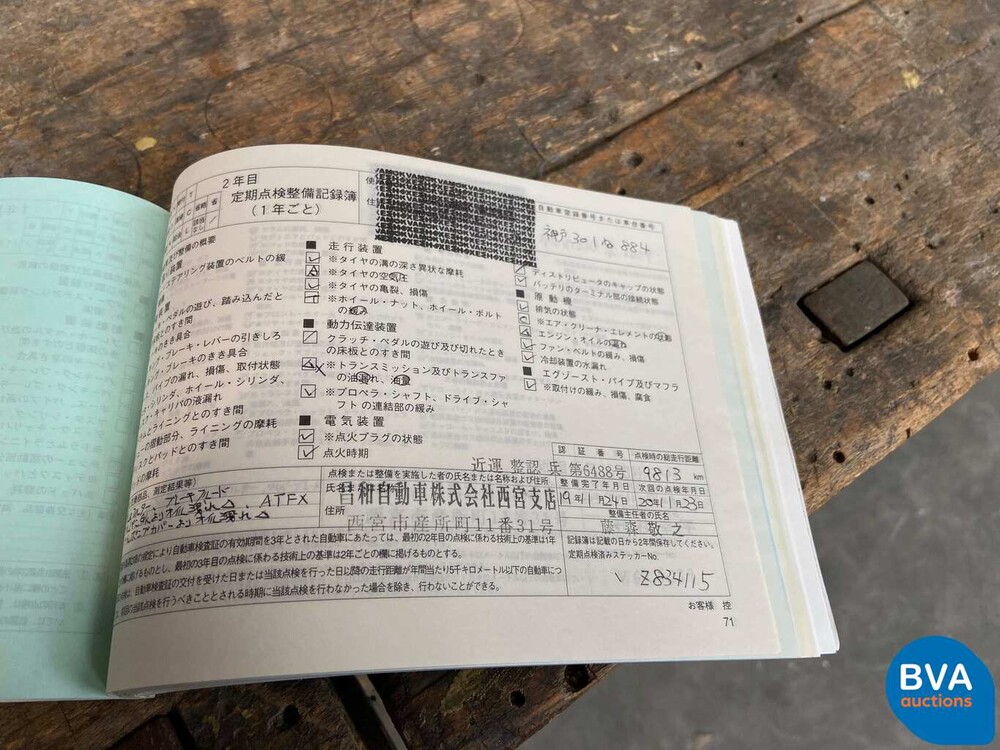 2年目
定期点検整備記録簿
(1年ごと)
使
住
自動車登録番号または車台番号
神戸 301 ね 884
及び整備の概要
ステアリング装置のベルトの緩
ペダルの遊び、踏み込んだと
のすき間
のきき具合
ブレーキ・レバーの引きしろ
ブレーキのきき具合
パイプの漏れ、損傷、取付状態
シリンダ、ホイール・シリンダ、
キャリパの液漏れ
とライニングとのすき間
の摺動部分、ライニングの摩耗
スクとパッドとのすき間
ドの摩耗
■ 走行装置
※タイヤの溝の深さ異状な摩耗
※タイヤの空気圧
※タイヤの亀裂、損傷
※ホイール・ナット、ホイール・ボルト
の緩み
■ 動力伝達装置
クラッチ・ペダルの遊び及び切れたとき
の床板とのすき間
※トランスミッション及びトランスファ
の油漏れ、油量
※プロペラ・シャフト、ドライブ・シャ
フトの連結部の緩み
■ 電気装置
※点火プラグの状態
点火時期
ディストリビュータのキャップの状態
バッテリのターミナル部の接続状態
■ 原動機
排気の状態
※エア・クリーナ・エレメントの状態
エンジン・オイルの漏れ
ファン・ベルトの緩み、損傷
冷却装置の水漏れ
■ エグゾースト・パイプ及びマフラ
※取付けの緩み、損傷、腐食
部品、測定結果等)
ブレーキフルード
よりオイル漏れ△ ATFX
カバーよりオイル漏れ△
点検または整備を実施した者の氏名または名称および住所
近運整認兵第6488号
氏名
吉和自動車株式会社西宮支店
住所
西宮市産所町11番31号
認証番号
点検時の総走行距離
9813 km
整備完了年月日
次回の点検年月日
19年11月24日
20年11月23日
整備主任者の氏名
藤森敬之
記録簿は記載の日から2年間保存してください。
定期点検済みステッカーNo.
Z834115
の規定により自動車検査証の有効期間を3年とされた自動車にあたっては、最初の2年目の点検に係わる技術上の基準は1年
に掲げるものとし、最初の3年目の点検に係わる技術上の基準は2年ごとの欄に掲げるものとする。
は、自動車検査証の交付を受けた日または当該点検を行った日以降の走行距離が年間当たり5千キロメートル以下の自動車につ
回の当該点検を行うべきこととされる時期に当該点検を行わなかった場合を除き、行わないことができる。
お客様 控
71
BVA
auctions